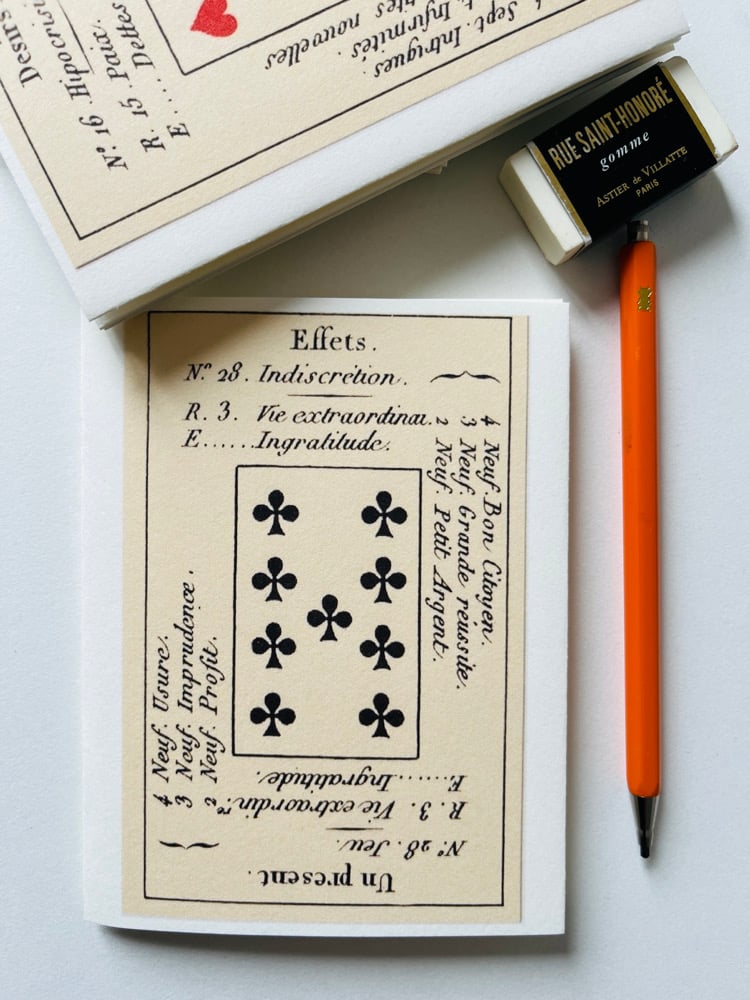 Effets.
N.° 28. Indiscrétion.
R. 3. Vie extraordinai.
E......Ingratitude.
4 Neuf. Bon Citoyen.
3 Neuf. Grande réussite.
2 Neuf. Petit Argent.
4 Neuf. Usure.
3 Neuf. Imprudence.
2 Neuf. Profit.
Un present.
N.° 28. Jeu.
R. 3. Vie extraordin.re
E......Ingratitude.
Desirs
N.° 16. Hipocrisi
R. 15. Paix.
E..... Dettes
Sept. Intrigues.
Infirmités.
nouvelles
RUE SAINT-HONORÉ
gomme
ASTIER de VILLATTE
PARIS